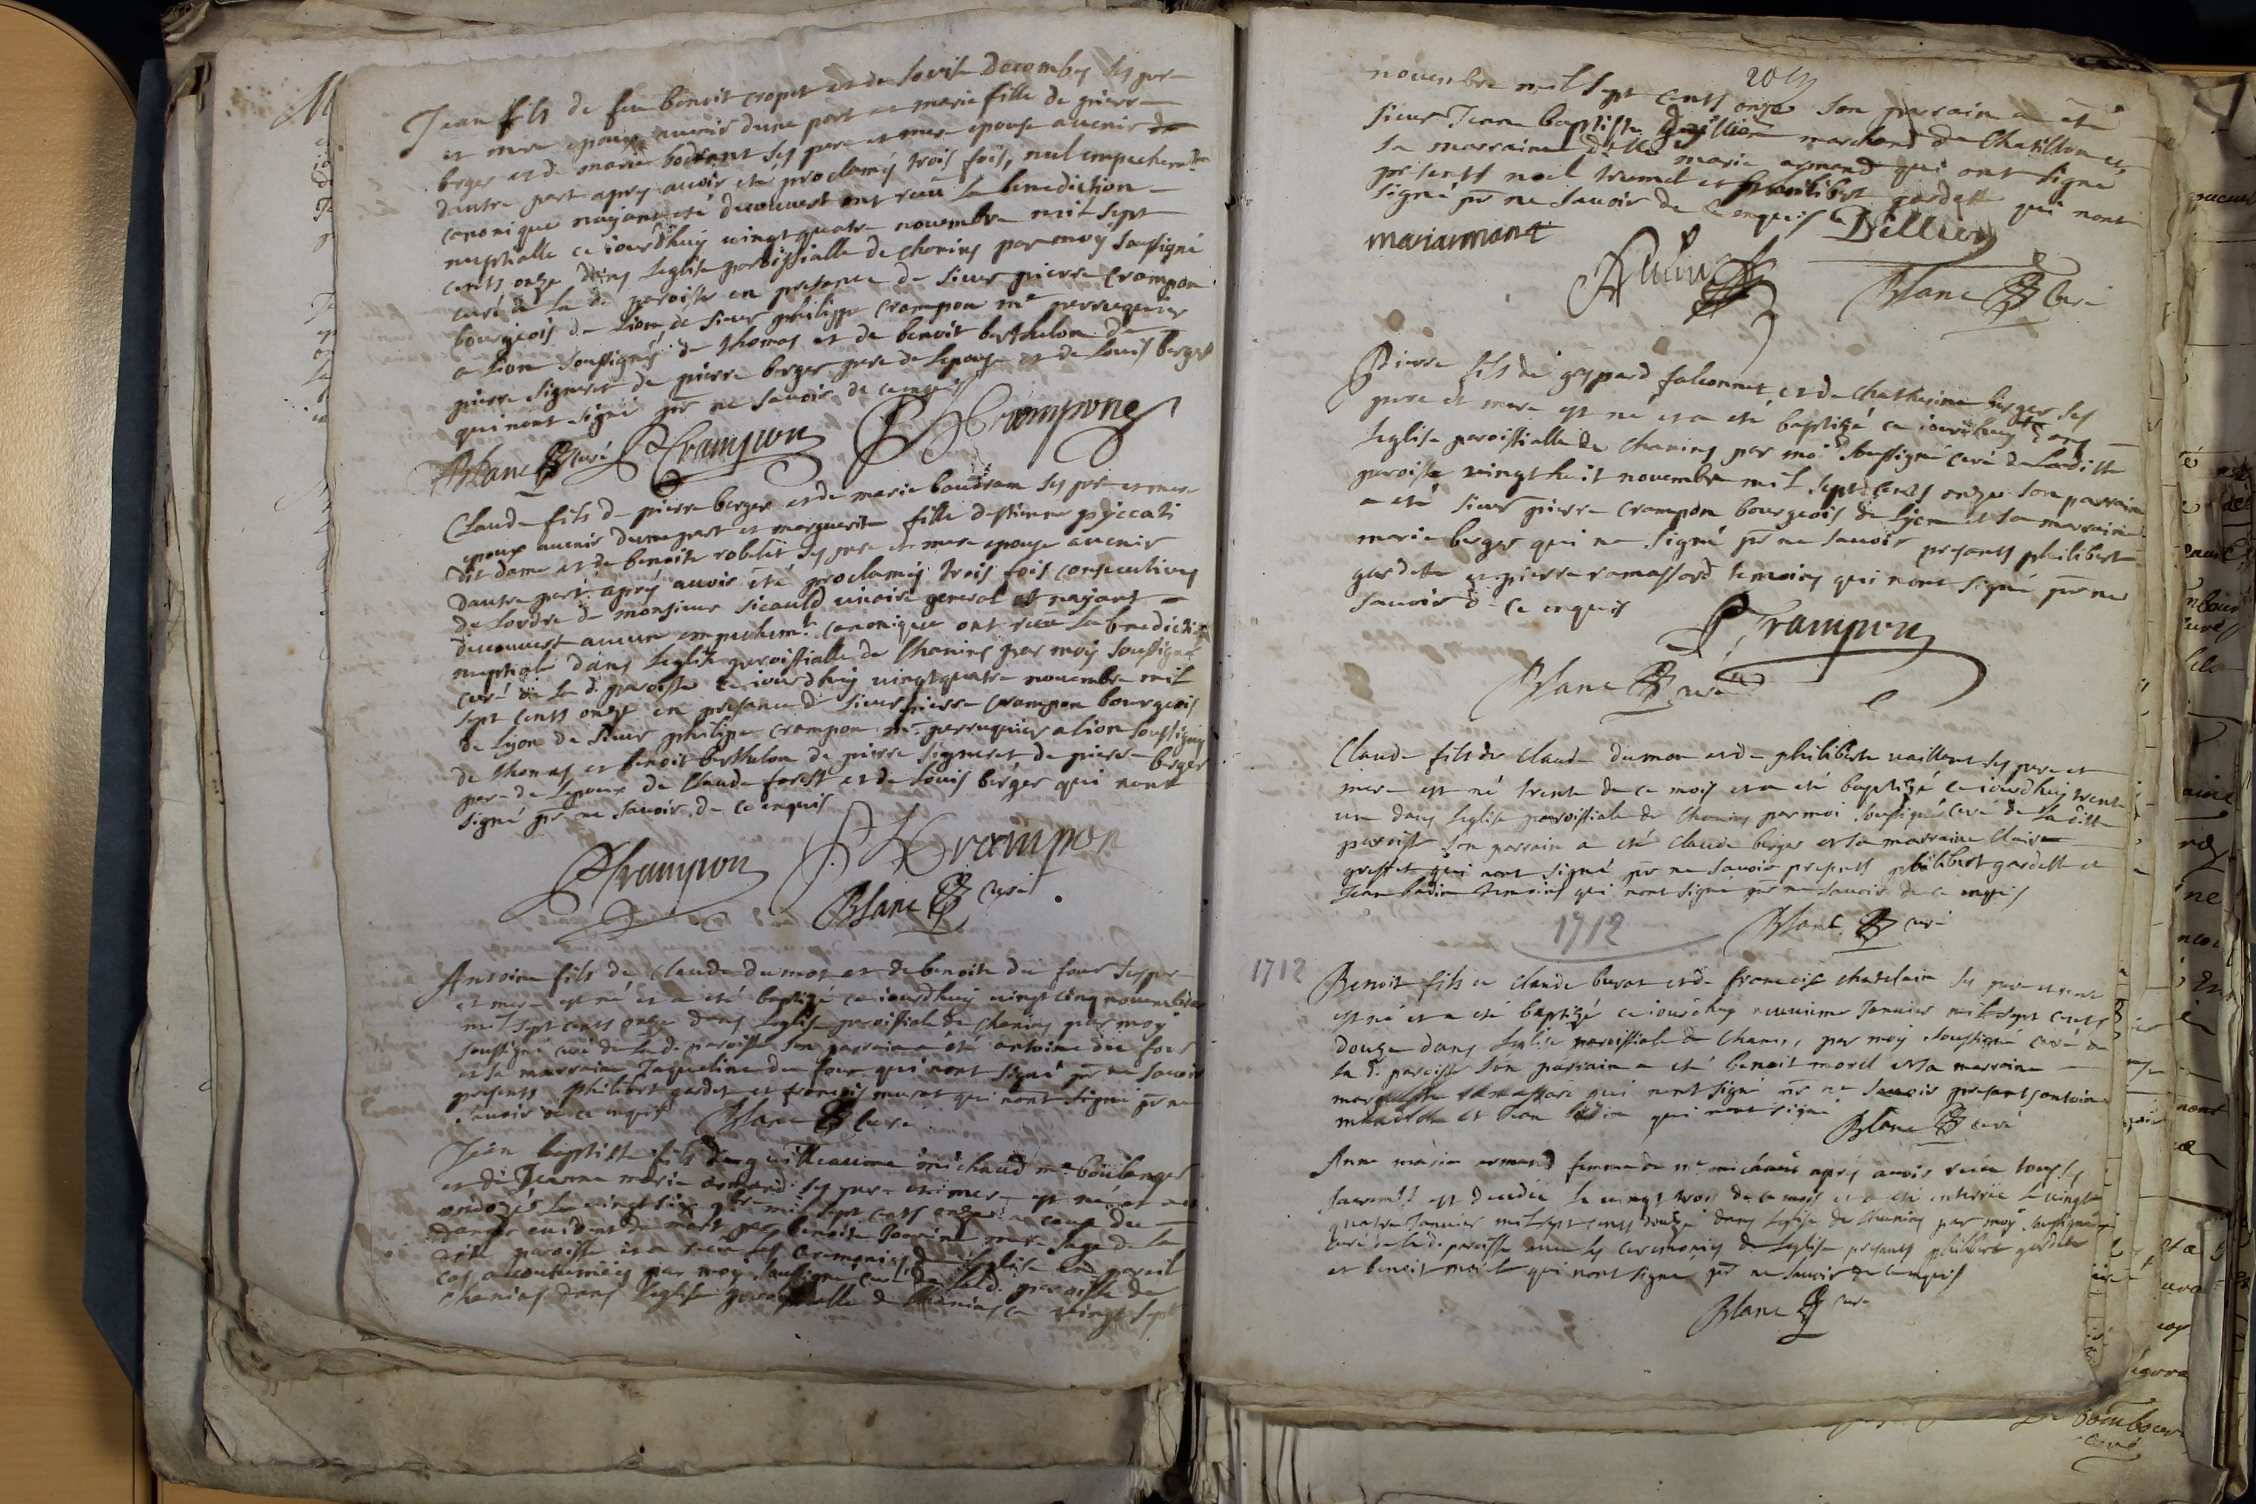 Jean fils de feu benoit cropet et de Lovise Decombes ses pere
et mere epoux avenir dune part et marie fille de pierre
berger et de marie bodrant ses pere et mere epouse avenir
dautre part apres avoir eté proclamés trois fois, nul empechem.t
canonique nayant eté decouvert ont receu la benediction
nuptialle ce iourdhuy vingt quatre novembre mil sept
cents onze dans leglise paroissialle de chanins par moy soussigné
curé de la d. paroisse en presence de sieur pierre crampon
bourgeois de Lion de sieur philippe crampon m.e perruquier
a Lion soussignés de thomas et de benoit berthelon de
pierre signeret de pierre berger pere de lepouse et de Louis berger
qui nont signé pr ne savoir de ce enquis
Blanc curé PCrampon Crampone
Claude fils de pierre berger et de marie baudran ses pere et mere
epoux avenir dune part et marguerite fille destienne
dit dame et de benoite robelet ses pere et mere epouse avenir
dautre part apres avoir eté proclamés trois fois consecutives
de lordre de monsieur sicauld vicaire general et nayant
decouvert aucun empechem.t canonique ont receu la benediction
nuptiale dans leglise paroissialle de Chanins par moy soussigné
curé de la d. paroisse ce iourdhuy vingtquatre novembre mil
sept cents onze en presence de sieur pierre crampon bourgeois
de Lyon de sieur philipe crampon m.e perruquier a lion soussignes
de thomas et benoit berthelon de pierre signeret de pierre berger
pere de lepoux de Claude forest et de Louis berger qui nont
signé pr ne savoir de ce enquis
PCrampon Crampon
Blanc curé
Antoine fils de claude dumot et de benoite du four ses pere
et mere est né et a eté baptizé ce iourdhuy vingt cinq novembre
mil sept cents onze dans leglise paroissiale de chanins par moy
soussigné curé de la d. paroisse son parrain a eté antoine du four
et sa marraine Jaqueline du four qui nont signé pr ne savoir
presents philibert gardet et francois murat qui nont signé pr ne
savoir de ce enquis Blanc curé
Jean baptiste fils de guilleaume michaud m.e boulanger
et de Jeanne marie armand ses pere et mere est né et a eté
ondoyés le vingt six 9bre mil sept cents onze a cause du
danger evident de mort par benoite mere sage de la
dite paroisse et a receu les ceremonies de leglise en pareil
cas accoutumées par moy soussigné curé de la d. paroisse de
chanins dans leglise paroissialle de Chanins ce vingt sept
novembre mil sept cents onze son parrain a eté
sieur Jean baptiste marchand de Chatillon et
sa marraine d.lle marie armand qui ont signé
presents noel trumel et philibert gardette qui nont
signé pr ne savoir de ce enquis Dellier
mariarmant
Blanc curé
Pierre fils de gaspard falconnet et de Chatherine berger ses
pere et mere est né et a eté baptizé ce iourdhuy dans
leglise paroissialle de Chanins par moi soussigné curé de laditte
paroisse vingt huit novembre mil sept cents onze son parrain
a eté sieur pierre crampon bourgeois de Lyon et sa marraine
marie berger qui na signé pr ne savoir presents philibert
gardette et pierre ramassard temoins qui nont signé pr ne
savoir de ce enquis
PCrampon
Blanc curé
Claude fils de Claude dumon et de philiberte vaillant ses pere et
mere est né trente de ce mois et a eté baptizé ce iourdhuy trente
un dans leglise paroissiale de Chanins par moi soussigné curé de la ditte
paroisse son parrain a eté Claude berger et sa marraine Claire
qui nont signé pr ne savoir presents philibert gardette et
Jean badin temoins qui nont signé pr ne savoir de ce enquis
1712 Blanc curé
1712
Benoit fils de Claude burat et de francoise chatelain ses pere et mere
est né et a eté baptizé ce iourdhuy neuvieme Janvier mil sept cents
douze dans leglise paroissiale de Chanins, par moy soussigné curé de
la d. paroisse son parrain a eté benoit morel et sa marraine
marguerite ramassard qui nont signé pr ne savoir presents antoine
et Jean badin qui nont signé Blanc curé
Anne marie armand femme de m.e michaud apres avoir receu tous les
sacrem.ts est decedée le vingt trois de ce mois et a eté enterrée le vingt
quatre Janvier mil sept cents douze dans leglise de Chanins par moy soussigné
curé de la d. paroisse avec les ceremonies de leglise presents philibert gardette
et benoit morel qui nont signé pr ne savoir de ce enquis
Blanc curé